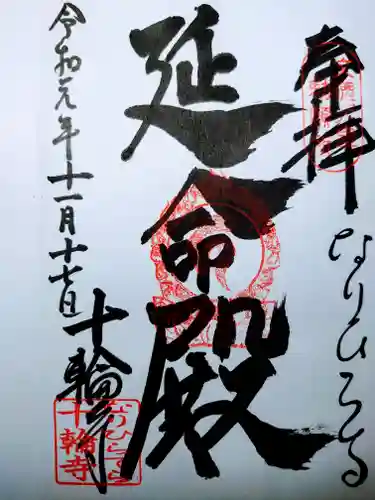 奉拝
なりひら寺
延命殿
令和元年十一月十七日
十輪寺
なりひら寺
十輪寺